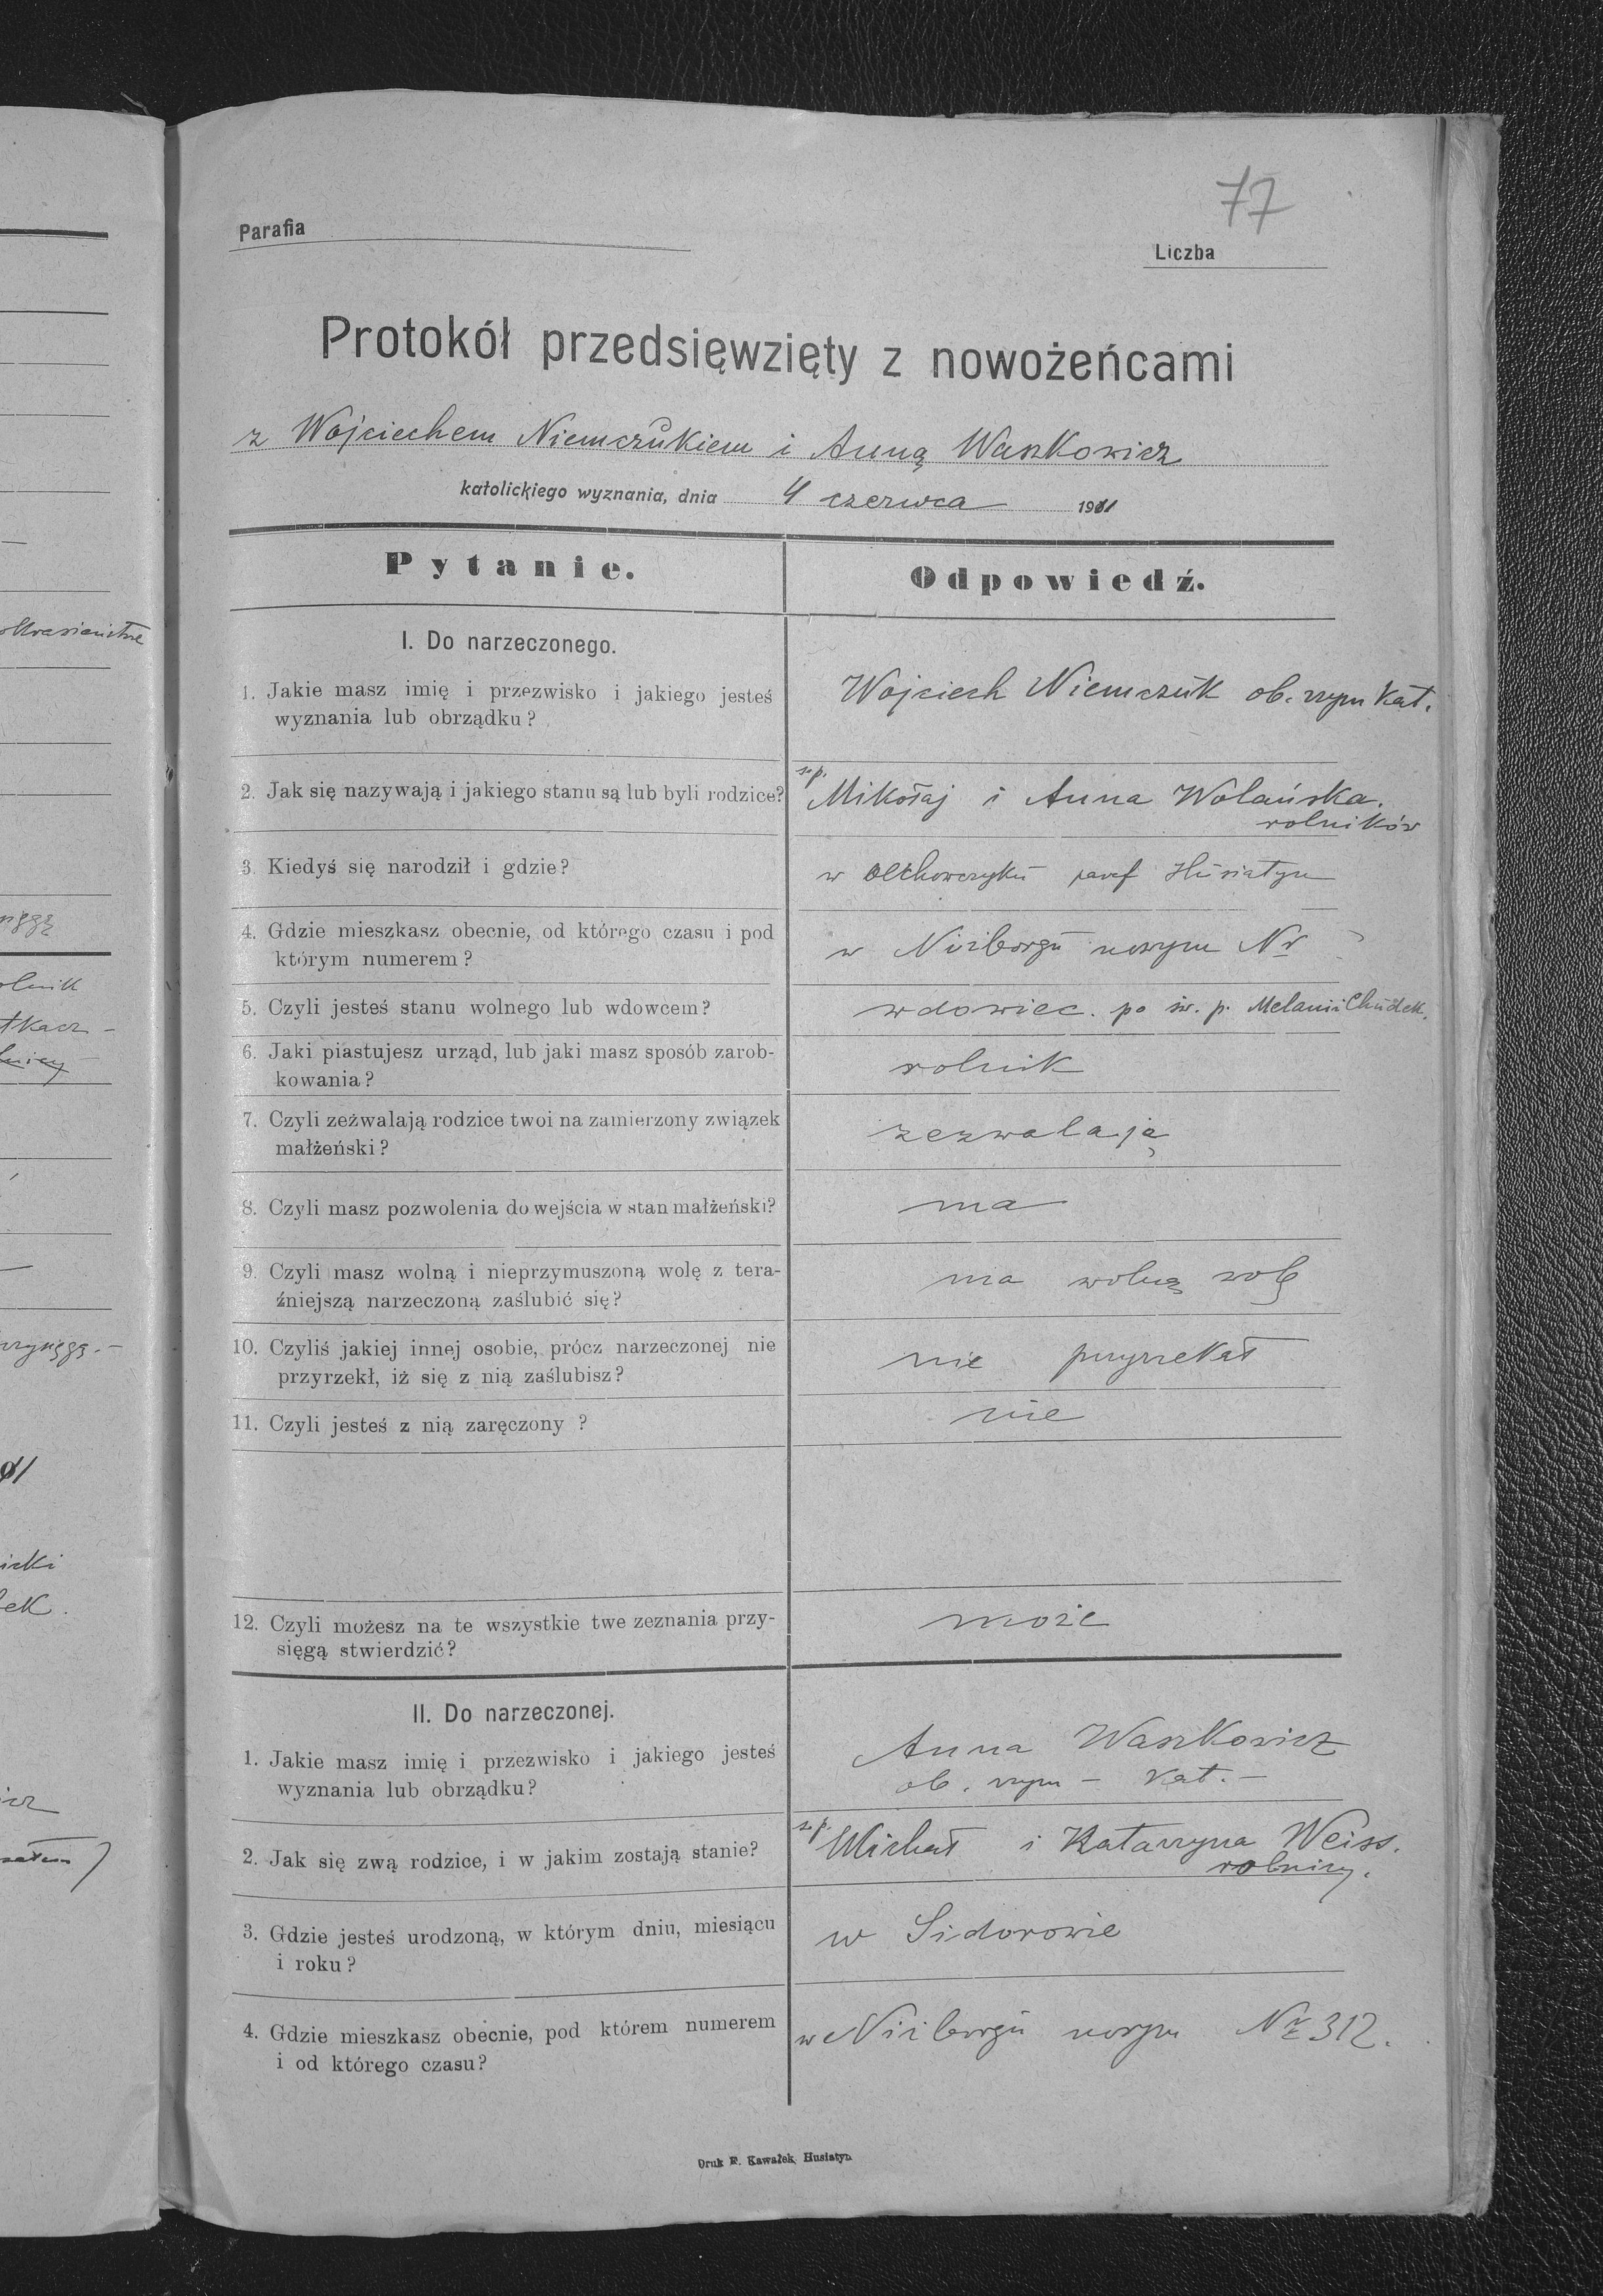 77
Parafia
Liczba
Protokół przedsięwzięty z nowożeńcami
z Wojciechem Niemczukiem i Anną Waszkowicz
katolickiego wyznania, dnia 4 czerwca 1911
Pytanie.
Odpowiedź.
I. Do narzeczonego.
1. Jakie masz imię i przezwisko i jakiego jesteś
wyznania lub obrządku?
Wojciech Niemczuk ob. rzym kat.
2. Jak się nazywają i jakiego stanu są lub byli rodzice?
ś.p. Mikołaj i Anna Wolańska.
rolników
3. Kiedyś się narodził i gdzie?
w Olchowczyku paraf Husiatyn
4. Gdzie mieszkasz obecnie, od którego czasu i pod
którym numerem?
w Niżborgu nowym Nr
5. Czyli jesteś stanu wolnego lub wdowcem?
wdowiec. po św. p. Melanii Chudek.
6. Jaki piastujesz urząd, lub jaki masz sposób zarob-
kowania?
rolnik
7. Czyli zeżwalają rodzice twoi na zamierzony związek
małżeński?
zezwalają
8. Czyli masz pozwolenia do wejścia w stan małżeński?
ma
9. Czyli masz wolną i nieprzymuszoną wolę z tera-
źniejszą narzeczoną zaślubić się?
ma wolną wolę
10. Czyliś jakiej innej osobie, prócz narzeczonej nie
przyrzekł, iż się z nią zaślubisz?
nie przyrzekał
11. Czyli jesteś z nią zaręczony ?
nie
12. Czyli możesz na te wszystkie twe zeznania przy-
sięgą stwierdzić?
może
II. Do narzeczonej.
1. Jakie masz imię i przezwisko i jakiego jesteś
wyznania lub obrządku?
Anna Waszkowicz
ob. rzym - kat. -
2. Jak się zwą rodzice, i w jakim zostają stanie?
ś.p. Michał i Katarzyna Weiss.
rolnicy.
3. Gdzie jesteś urodzoną, w którym dniu, miesiącu
i roku?
w Sidorowie
4. Gdzie mieszkasz obecnie, pod którem numerem
i od którego czasu?
w Niżborgu nowym Nr 312.
Druk F. Kawałek, Husiatyn